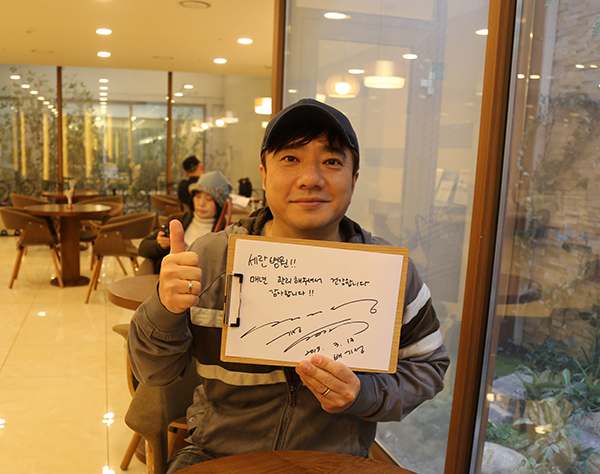 세란병원!!
매년 관리해주셔서 건강합니다
감사합니다!!
2019. 3. 14
배기성